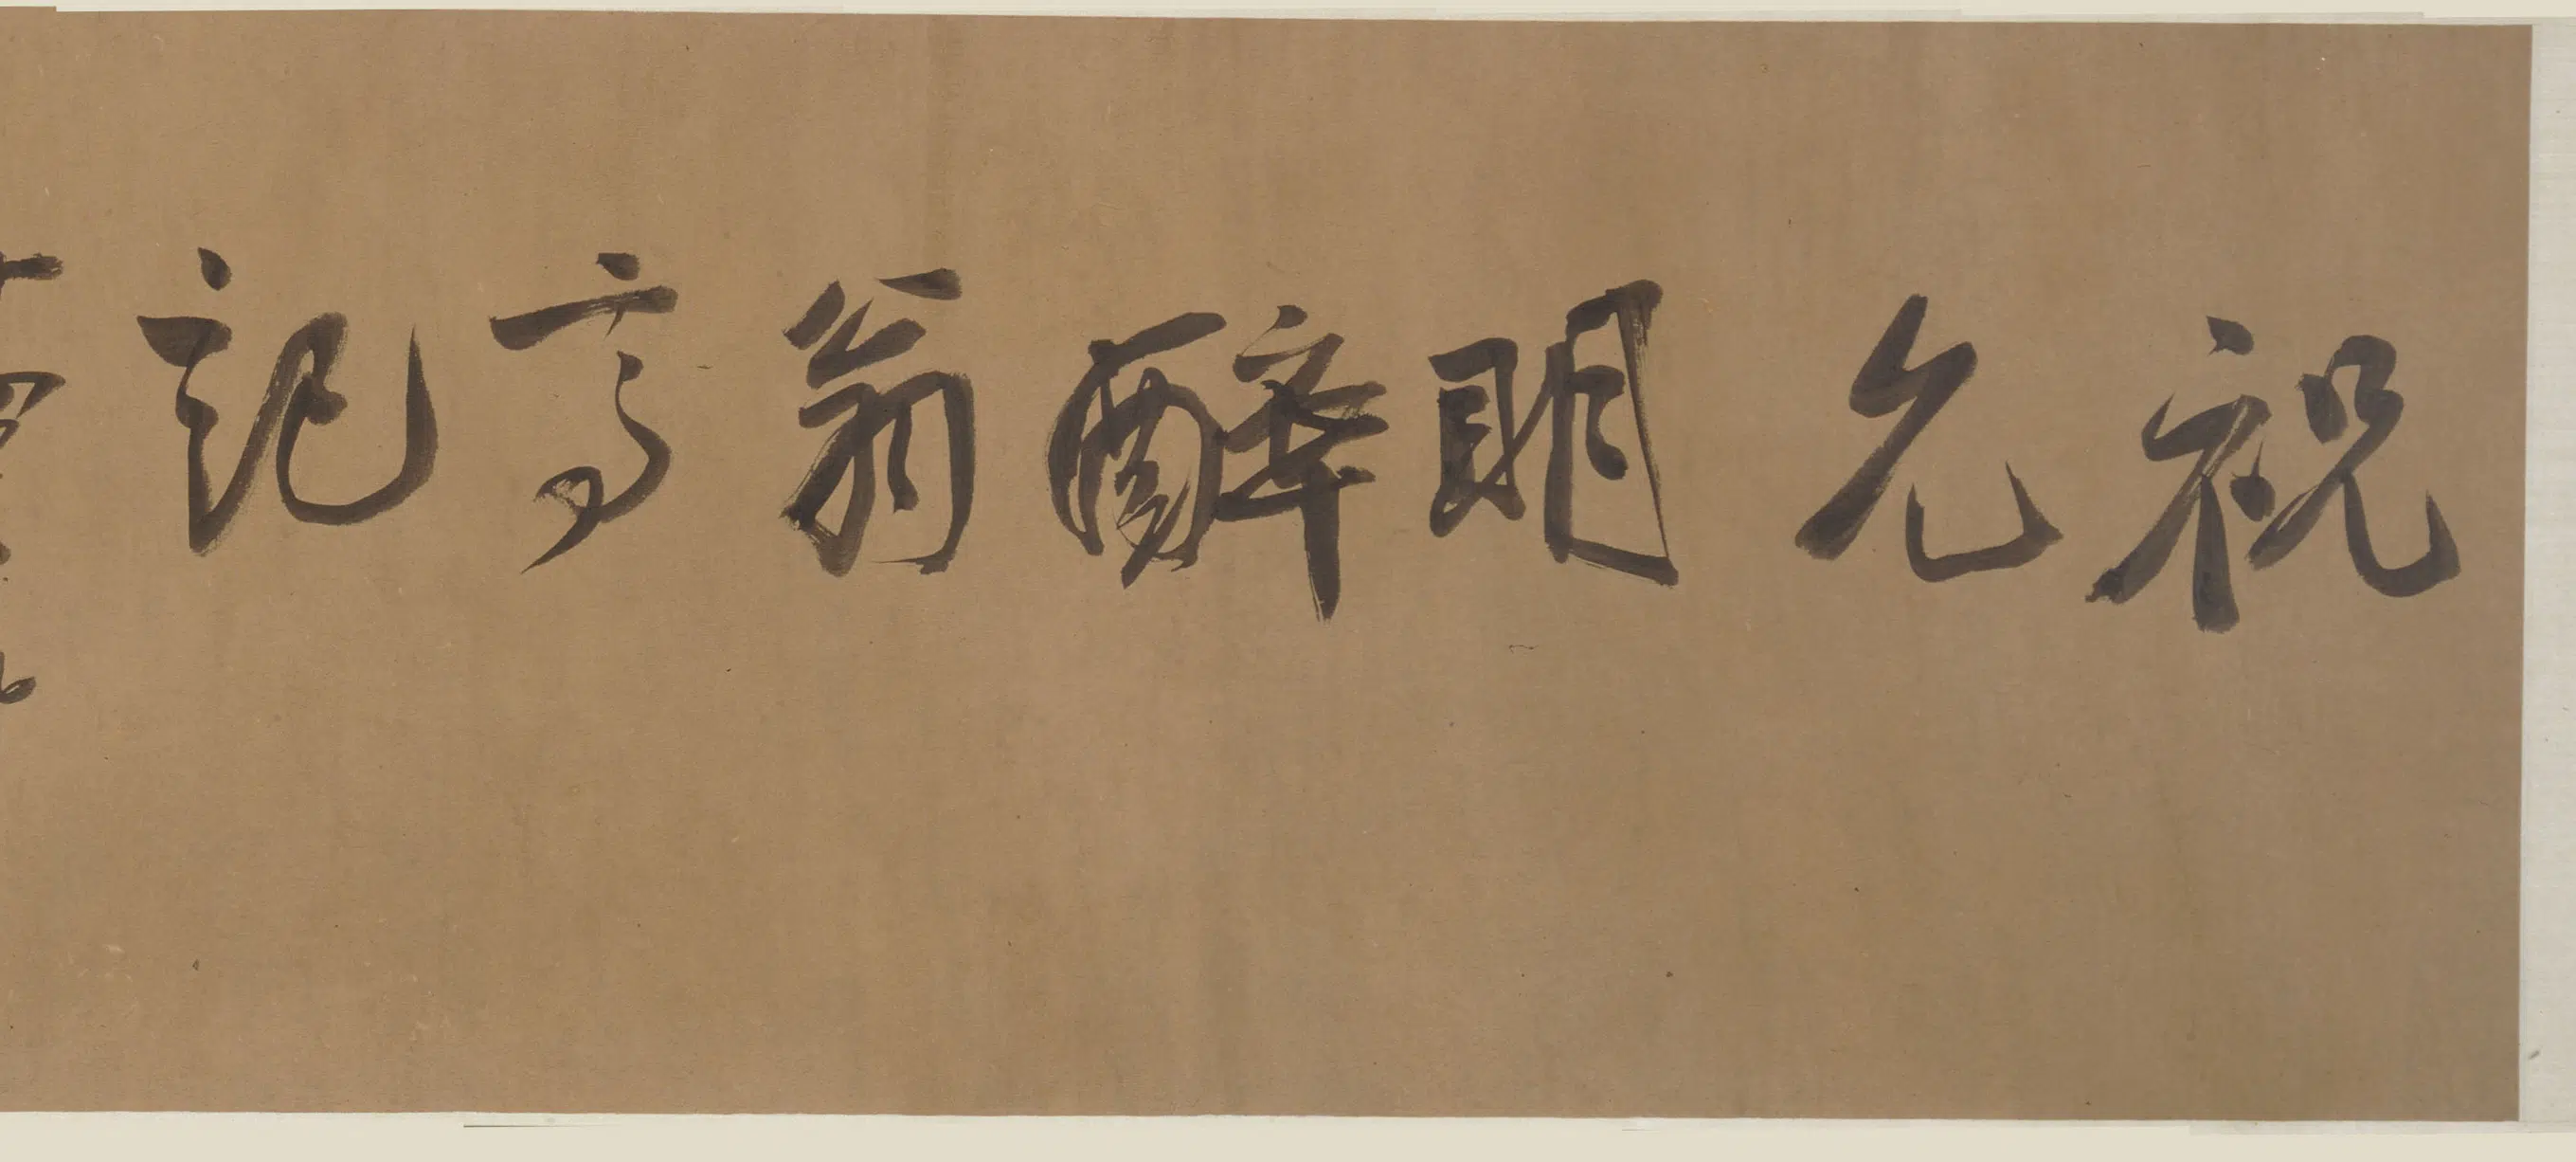 祝允明醉翁亭記